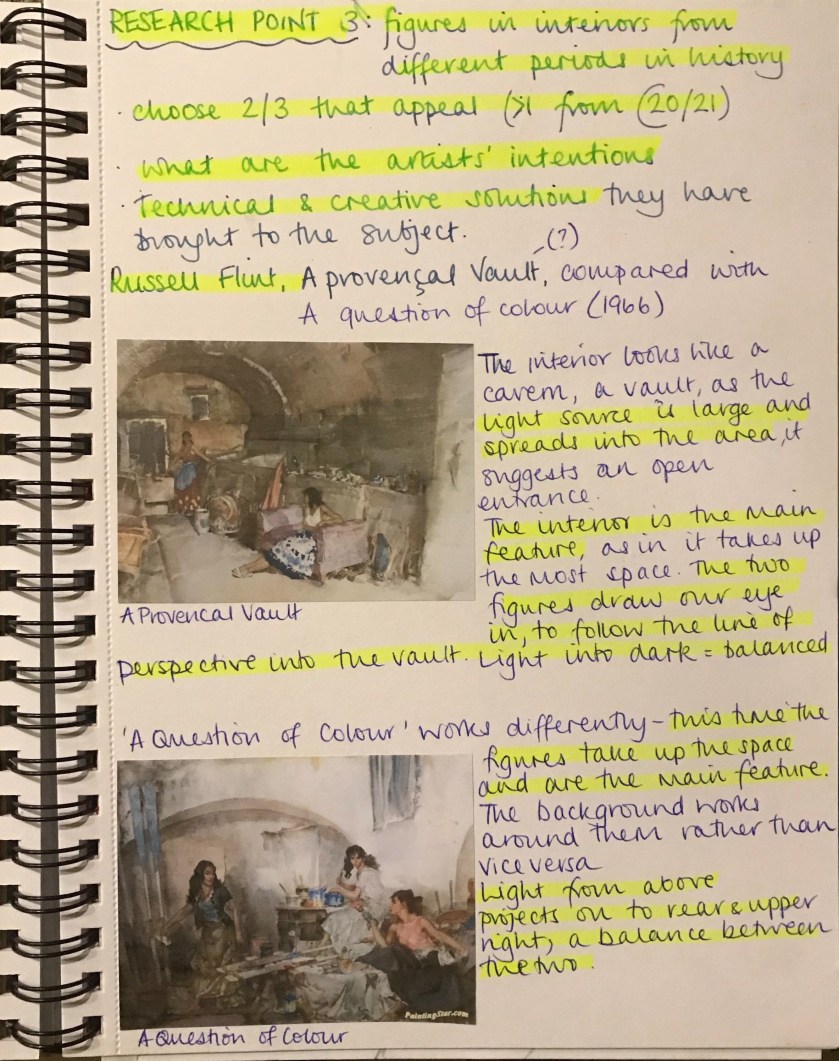 RESEARCH POINT 3: figures in interiors from
different periods in history
· choose 2/3 that appeal (>1 from 20/21)
· what are the artists' intentions
· Technical & creative solutions they have
brought to the subject.
(?)
Russell Flint, A provençal Vault, compared with
A question of colour (1966)
The interior looks like a
cavern, a vault, as the
light source is large and
spreads into the area, it
suggests an open
entrance.
The interior is the main
feature, as in it takes up
the most space. The two
figures draw our eye
in, to follow the line of
A Provencal Vault
perspective into the vault. Light into dark = balanced
'A Question of Colour' works differently - this time the
figures take up the space
and are the main feature.
The background works
around them rather than
vice versa
Light from above
projects on to rear & upper
right, a balance between
the two.
PaintingStar.com
A Question of Colour